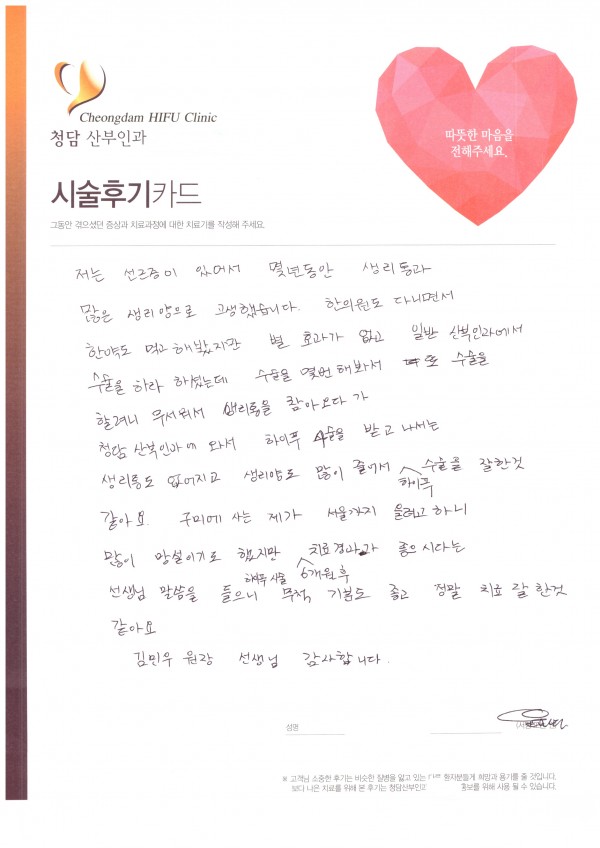 Cheongdam HIFU Clinic
청담 산부인과
따뜻한 마음을
전해주세요.
시술후기카드
그동안 겪으셨던 증상과 치료과정에 대한 치료기를 작성해 주세요.
저는 선근증이 있어서 몇년동안 생리통과
많은 생리양으로 고생했습니다. 한의원도 다니면서
한약도 먹고 해봤지만 별 효과가 없고 일반 산부인과에서
수술을 하라 하셨는데 수술을 몇번 해봐서 또 수술을
할려니 무서워서 생리통을 참아오다가
청담 산부인과에 와서 하이푸 시술을 받고 나서는
생리통도 없어지고 생리양도 많이 줄어서 하이푸 수술을 잘한것
같아요. 구미에 사는 제가 서울까지 올려고 하니
많이 망설이기도 했지만 치료경과가 좋으시다는
하이푸 시술 6개월후
선생님 말씀을 들으니 무척 기분도 좋고 정말 치료 잘 한것
같아요
김민우 원장 선생님 감사합니다.
성명
※ 고객님 소중한 후기는 비슷한 질병을 앓고 있는 환자분들게 희망과 용기를 줄 것입니다.
보다 나은 치료를 위해 본 후기는 청담산부인과 홍보를 위해 사용 될 수 있습니다.